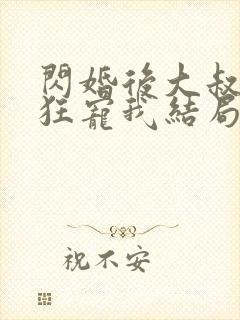 閃婚後大叔
狂寵我結局
祝不安